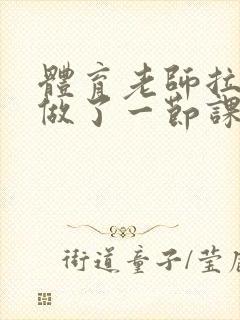 體育老師拉
做了一節課
街道童子/莹